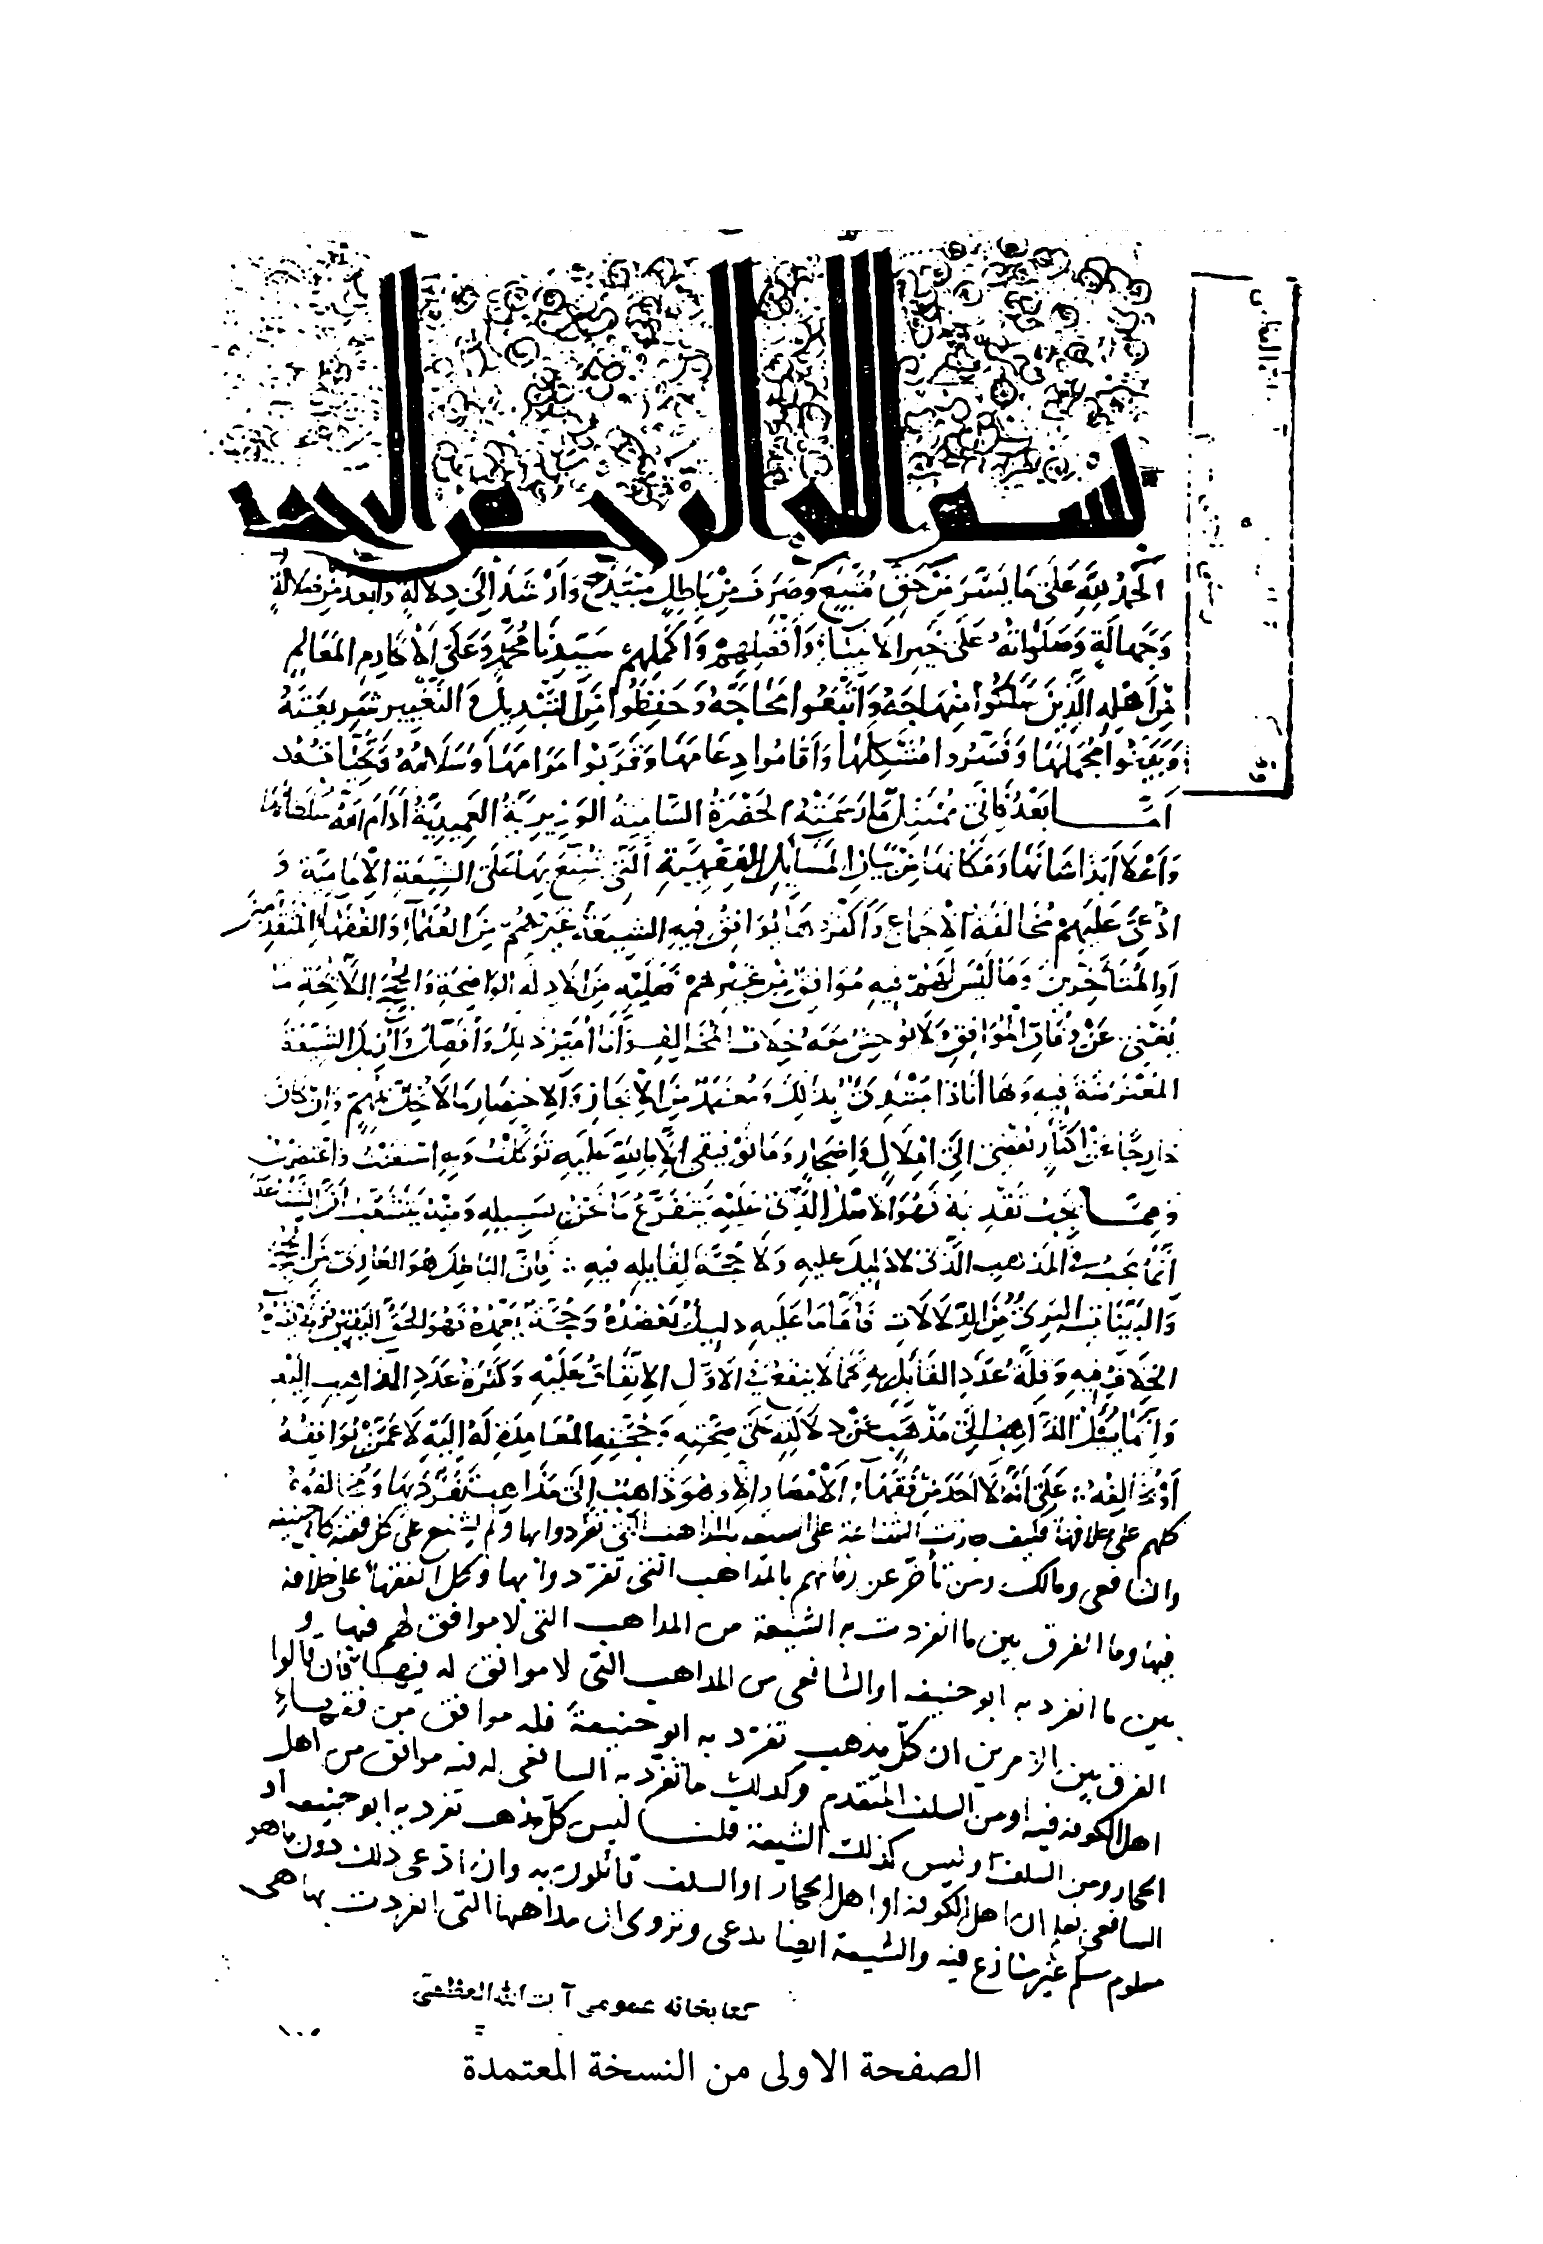 بسم الله الرحمن الرحيم
الحمد لله على ما يسّر من حق متبع وصرف من باطل مبتدع وارشد الى دلالة وابعد من ضلالة
وجهالة وصلواته على خير الانبياء وافضلهم واكملهم سيدنا محمد وعلى الاكارم المعالم
من اهله الذين سلكوا منهاجه واتبعوا محاجه وحفظوا من التبديل والتغيير شريعته
وبينوا مجملها وفسروا مشكلها واقاموا دعامها وقربوا مرامها وسلامه وتحياته
اما بعد فانى ممتثل ما رسمته الحضرة السامية الوزيرية العميدية ادام الله سلطانها
واعلا ابدا شانها ومكانها من بيان المسايل الفقهية التى شنع بها على الشيعة الامامية و
ادعى عليهم مخالفة الاجماع واكثرها يوافق فيه الشيعة غيرهم من العلماء والفقهاء المتقدمين
او المتأخرين وما ليس لهم فيه موافق من غيرهم فعليه من الادلة الواضحة والحجج اللائحة ما
يغنى عن وفاق الموافق ولا يوحش معه خلاف المخالف وان ابين ذلك وافصله وازيل الشبهة
المعترضة فيه وها انا ذا مبتدئ بذلك ومعتمد من الايجاز والاختصار ما لا يخل بفهم وان كان
خارجا عن اكثار يفضى الى املال واضجار وما توفيقى الا بالله عليه توكلت وبه استعنت واعتضدت
ومما يجب تقديمه فهو الاصل الذى عليه يتفرع ما نحن بسبيله ومنه يتشعب ان الشناعة
انما تجب فى المذهب الذى لا دليل عليه ولا حجة لقايله فيه فان الباطل هو العارى من الحجج
والبينات البرى من الدلالات فاما ما عليه دليل يعضده وحجة تعمده فهو الحق اليقين ولا يضره
الخلاف فيه وقلة عدد القايل به كما لا ينفع فى الاول الاتفاق عليه وكثرة عدد الذاهب اليه
وانما يسئل الذاهب الى مذهب عن دلالته على صحته وحجته العامدة له اليه لا عمن يوافقه
او يخالفه على انه لا احد من فقهاء الامصار الا وهو ذاهب الى مذاهب تفرد بها ومخالفوه
كلهم على خلافها فكيف جازت الشناعة على الشيعة بالمذاهب التى تفردوا بها ولم يشنع على كل فقيه كابى حنيفة
والشافعى ومالك ومن تأخر عن زمانهم بالمذاهب التى تفردوا بها وكل الفقهاء على خلافه
فيها وما الفرق بين ما انفردت به الشيعة من المذاهب التى لا موافق لهم فيها و
بين ما انفرد به ابو حنيفه او الشافعى من المذاهب التى لا موافق له فيها فان قالوا
الفرق بين الامرين ان كل مذهب تفرد به ابو حنيفة فله موافق من فقهاء
اهل الكوفة فيه او من السلف المتقدم وكذلك ما تفرد به الشافعى له فيه موافق من اهل
الحجاز ومن السلف وليس كذلك الشيعة قلنا ليس كل مذهب تفرد به ابو حنيفه او
الشافعى يعلم ان اهل الكوفة او اهل الحجاز او السلف قائلون به وان ادعى ذلك دون ما هو
معلوم مسلم غير منازع فيه والشيعة ايضا تدعى وتروى ان مذاهبها التى انفردت بها هى
كتابخانه عمومى آيت الله العظمى
الصفحة الاولى من النسخة المعتمدة